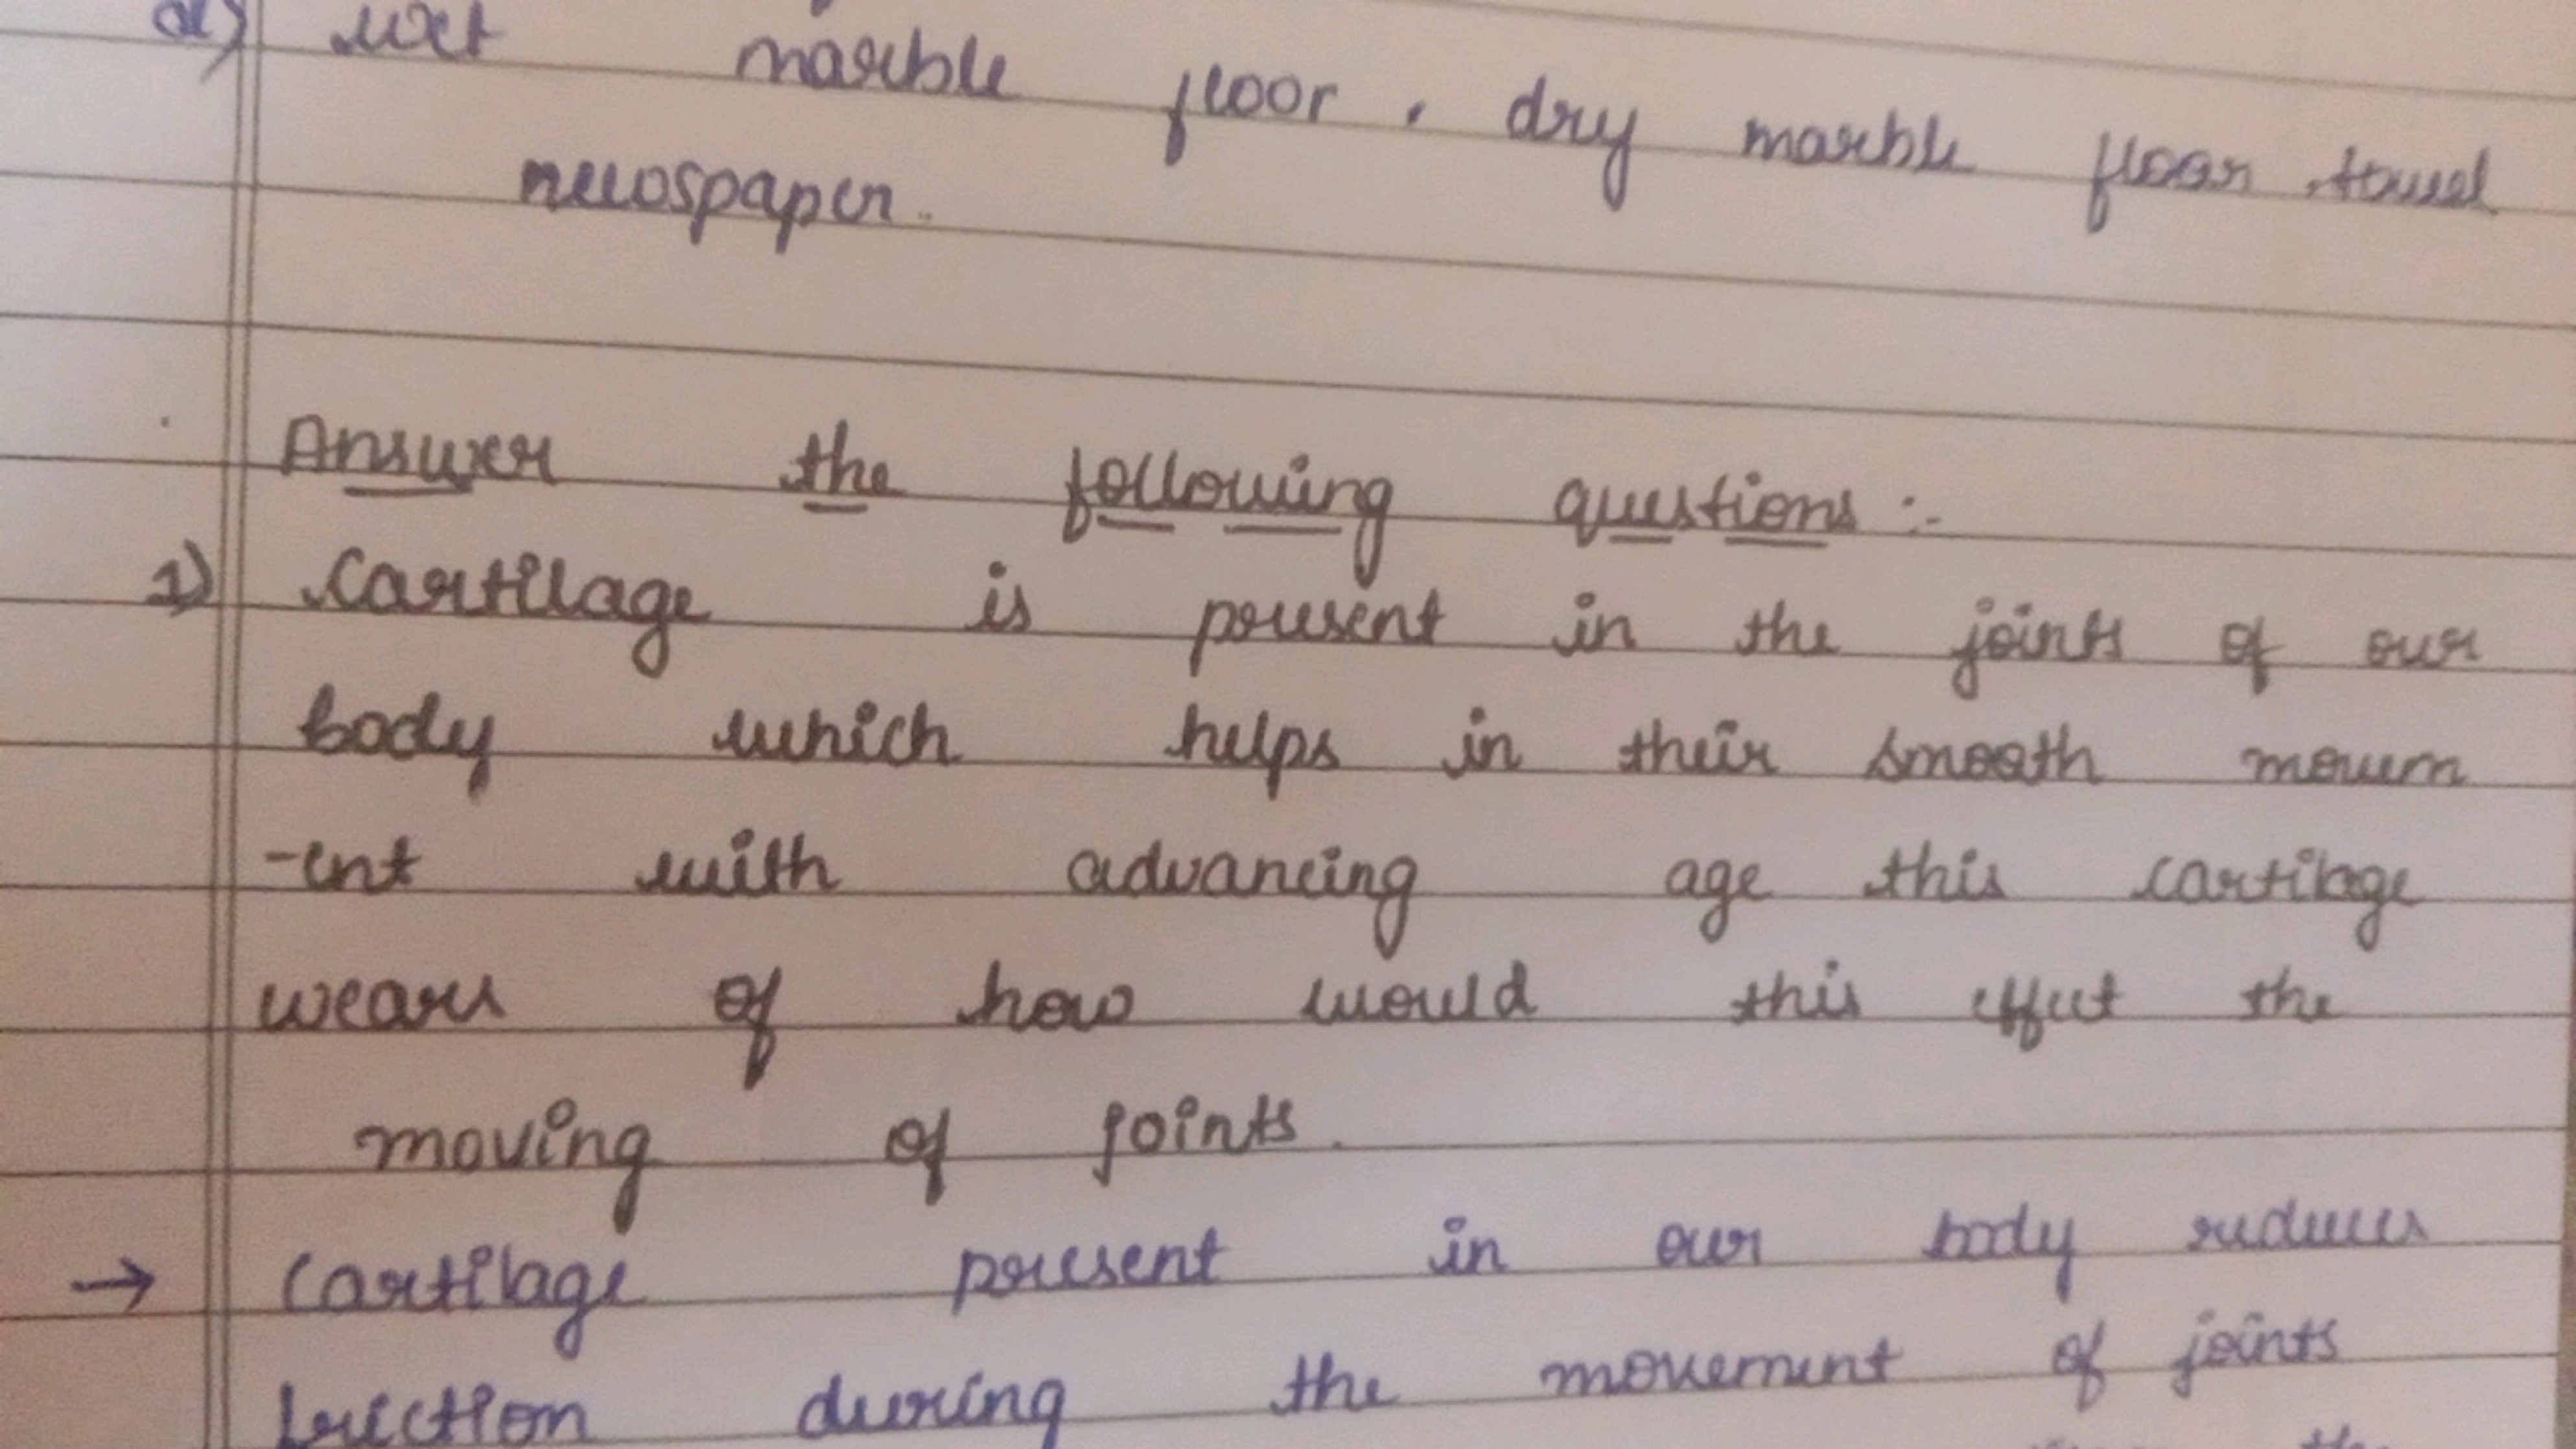 d) wet marble floor, dry marble floor, towel
newspaper.
Answer the following questions :-
1) Cartilage is present in the joints of our
body which helps in their smooth movem
-ent with advancing age this cartilage
wears of how would this effect the
moving of joints.
→ Cartilage present in our body reduces
friction during the movement of joints
the